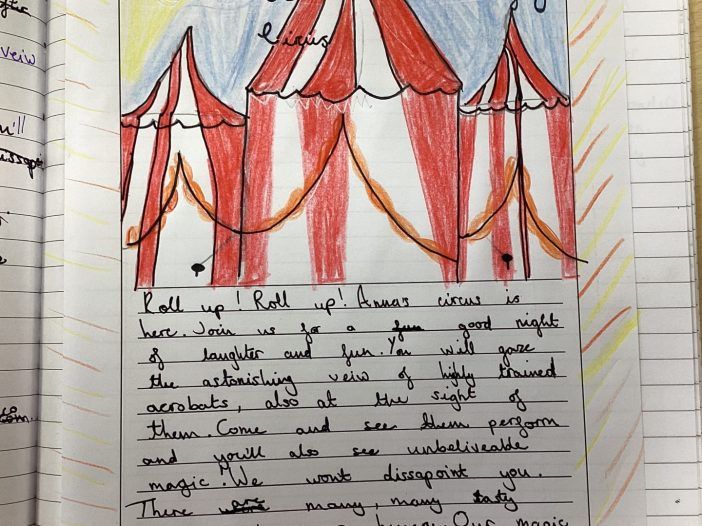 Circus
Roll up! Roll up! Anna's circus is
here. Join us for a fun good night
of laughter and fun. You will gaze
the astonishing veiw of highly trained
acrobats, also at the sight of
them. Come and see them perform
and you'll also see unbeliveable
magic! We wont dissapoint you.
There are many, many tasty
Our magic
veiw